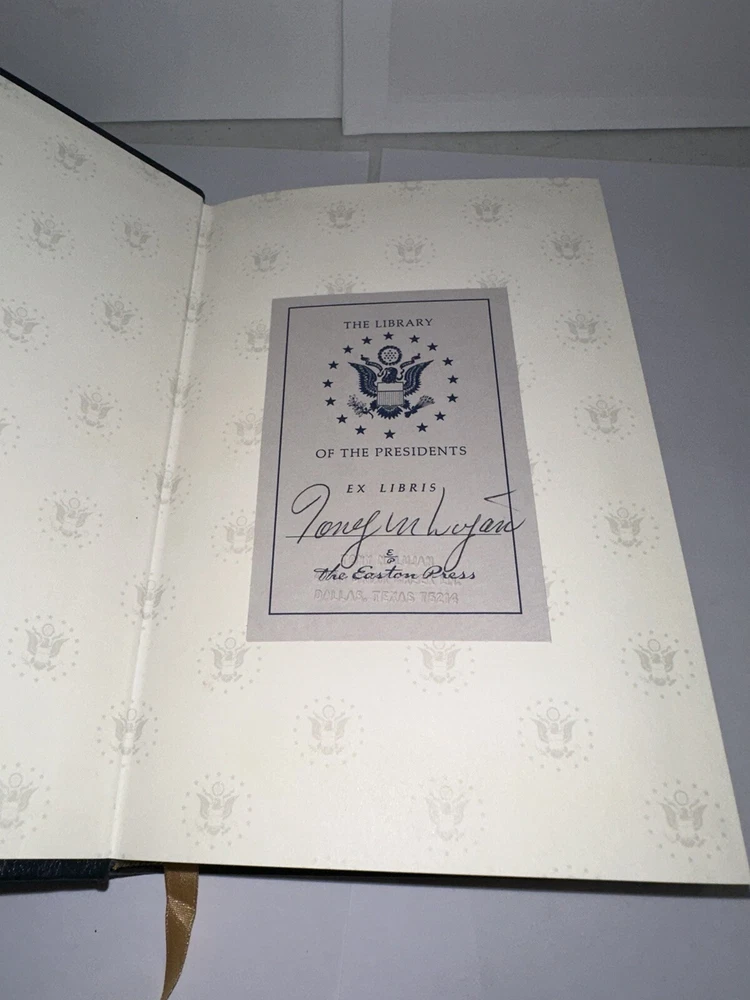 THE LIBRARY
OF THE PRESIDENTS
EX LIBRIS
Tony M Logan
E
P
The Easton Press
DALLAS, TEXAS 75214